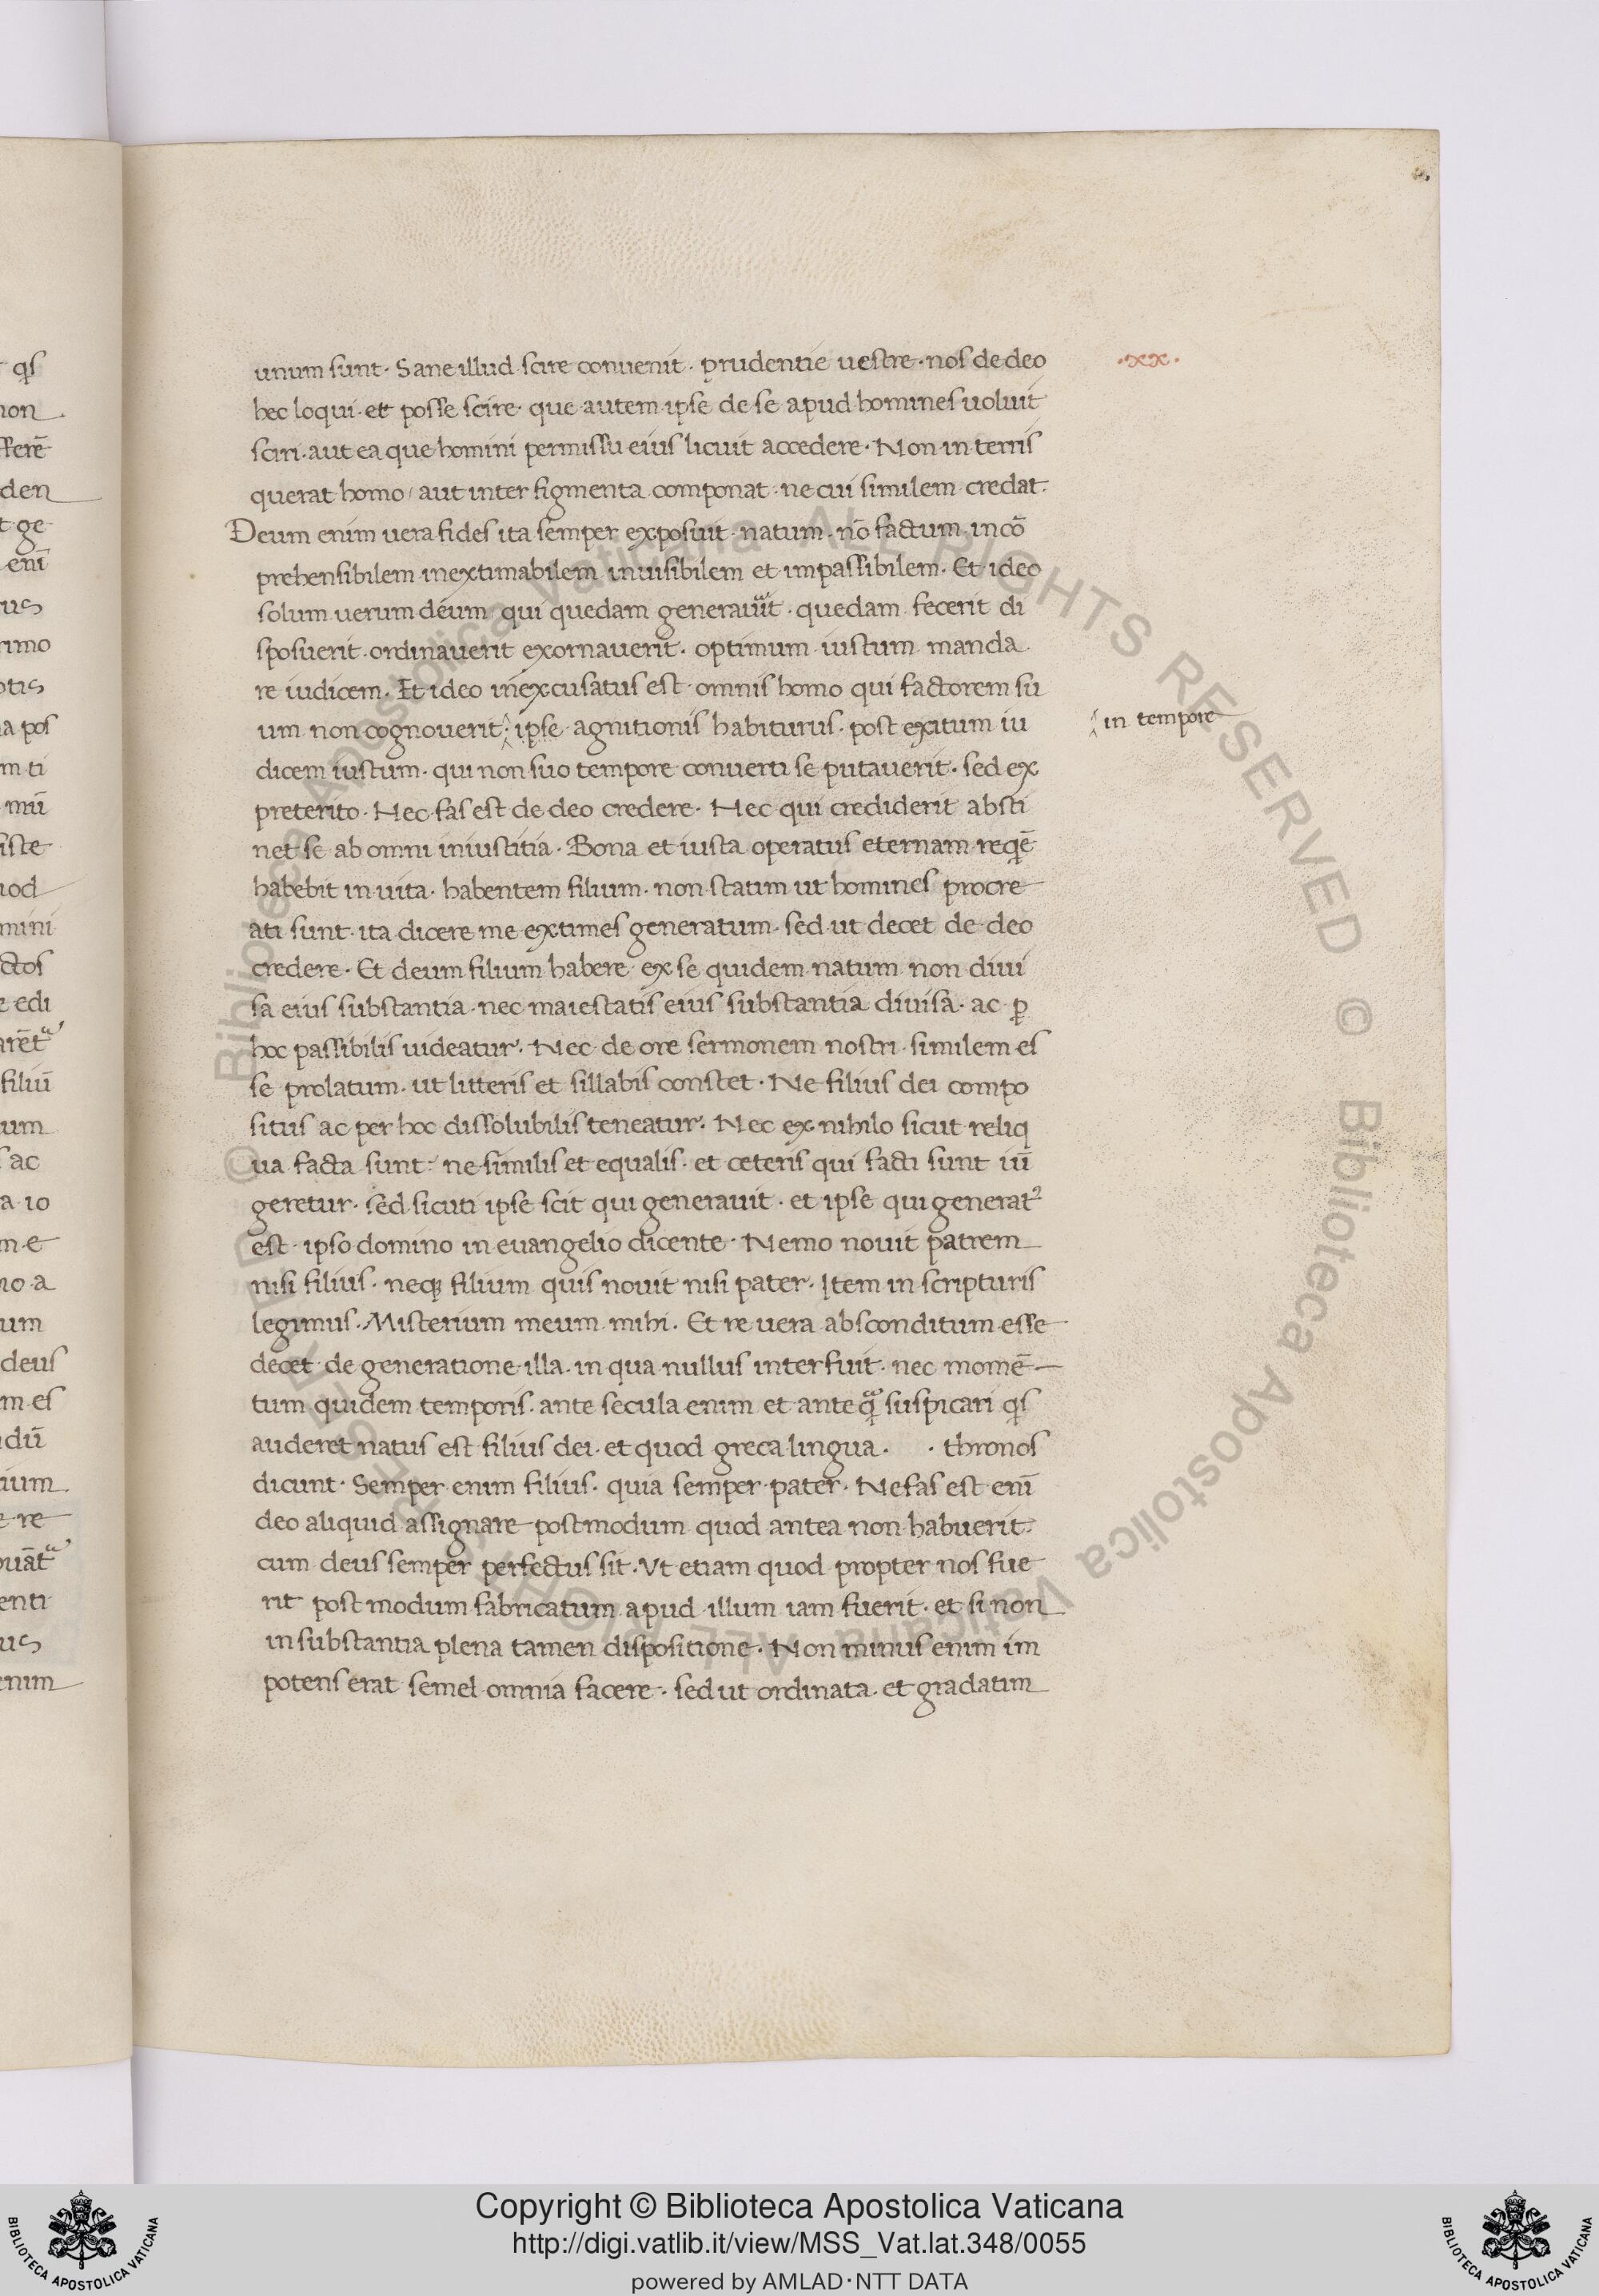 qs
non
fferē
den
t ge
enī
us
rimo
otis
a pos
m ti
mū
iste
uod
mini
ctos
e edi
arēt
filiū
um
ac
a io
m e
no a
um
deus
m es
dū
ium
e re
uāt
enti
us
enim
unum sunt. Sane illud scire conuenit. prudentie uestre. nos de deo
.xx.
hec loqui. et posse scire. que autem ipse de se apud homines uoluit
sciri. aut ea que homini permissu eius licuit accedere. Non in terris
querat homo, aut inter figmenta componat. ne cui similem credat.
Deum enim uera fides ita semper exposuit. natum. nō factum. incō
prehensibilem inextimabilem inuisibilem et impassibilem. Et ideo
solum uerum deum. qui quedam generauit. quedam fecerit di
sposuerit. ordinauerit exornauerit. optimum iustum manda
re iudicem. Et ideo inexcusatus est omnis homo qui factorem su
um non cognouerit; ipse agnitionis habiturus. post exitum iu
in tempore
dicem iustum. qui non suo tempore conuerti se putauerit. sed ex
preterito. Nec fas est de deo credere. Nec qui crediderit absti
net se ab omni iniustitia. Bona et iusta operatus eternam reqē
habebit in uita. habentem filium. non statim ut homines procre
ati sunt. ita dicere me extimes generatum. sed ut decet de deo
credere. Et deum filium habere ex se quidem natum non diui
sa eius substantia. nec maiestatis eius substantia diuisa. ac ꝑ
hoc passibilis uideatur. Nec de ore sermonem nostri similem es
se prolatum. ut litteris et sillabis constet. Ne filius dei compo
situs ac per hoc dissolubilis teneatur. Nec ex nihilo sicut reliq
ua facta sunt: ne similis et equalis. et ceteris qui facti sunt iū
geretur. sed sicuti ipse scit qui generauit. et ipse qui generatꝰ
est. ipso domino in euangelio dicente. Nemo nouit patrem
nisi filius. neqꝫ filium quis nouit nisi pater. Item in scripturis
legimus. Misterium meum mihi. Et re uera absconditum esse
decet de generatione illa. in qua nullus interfuit. nec momē
tum quidem temporis. ante secula enim et ante qᷓ suspicari qs
auderet natus est filius dei. et quod greca lingua. . thronos
dicunt. Semper enim filius. quia semper pater. Nefas est enī
deo aliquid assignare postmodum quod antea non habuerit.
cum deus semper perfectus sit. Vt etiam quod propter nos fue
rit post modum fabricatum apud illum iam fuerit. et si non
in substantia plena tamen dispositione. Non minus enim im
potens erat semel omnia facere. sed ut ordinata. et gradatim
© Biblioteca Apostolica Vaticana ALL RIGHTS RESERVED © Biblioteca Apostolica Vaticana ALL RIGHTS RESERVED
Copyright © Biblioteca Apostolica Vaticana
http://digi.vatlib.it/view/MSS_Vat.lat.348/0055
powered by AMLAD·NTT DATA
BIBLIOTECA APOSTOLICA VATICANA
BIBLIOTECA APOSTOLICA VATICANA